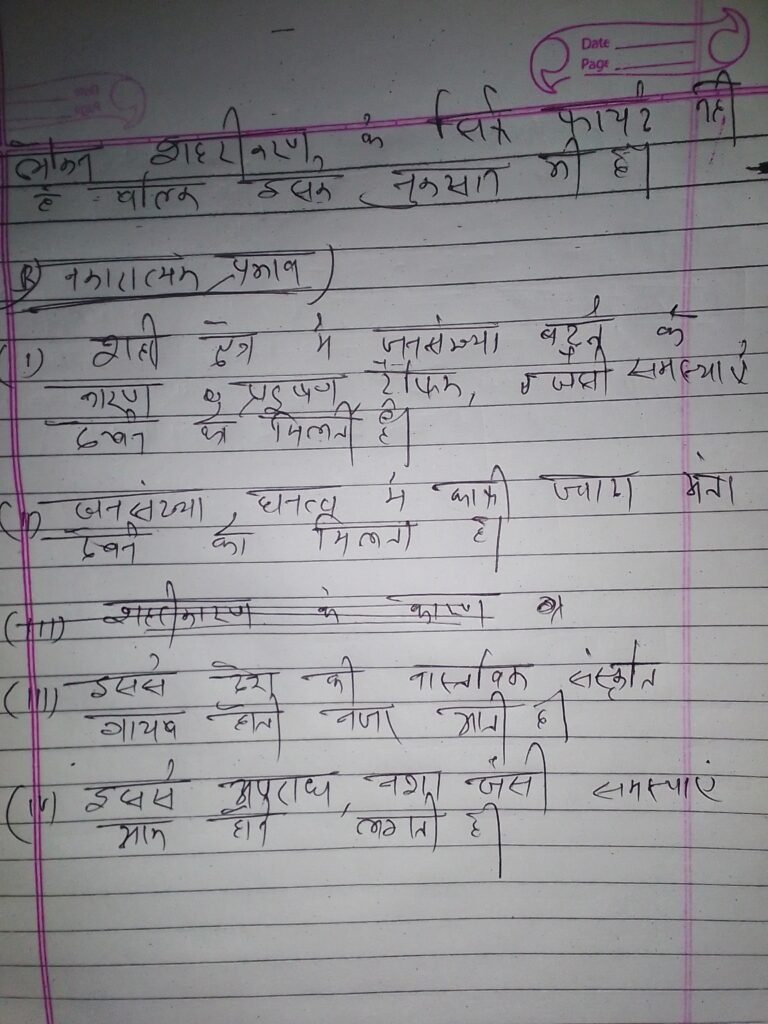 Date
Page
लेकिन शहरीकरण के सिर्फ फायदे नही
है बल्कि इसके नुकसान भी है।
(B) नकारात्मक प्रभाव
(I) शहरी क्षेत्र मे जनसंख्या बढ़ने के
कारण प्रदुषण ट्रेफिक, जैसी समस्याएं
देखने को मिलती है।
(II) जनसंख्या घनत्व मे काफी ज्यादा
देखने को मिलता है।
(III) के कारण
(III) इससे देश की वास्तविक संस्कृति
गायब होती नजर आती है।
(IV) इससे अपराध, नशा जैसी समस्याएं
आम होने लगती है।